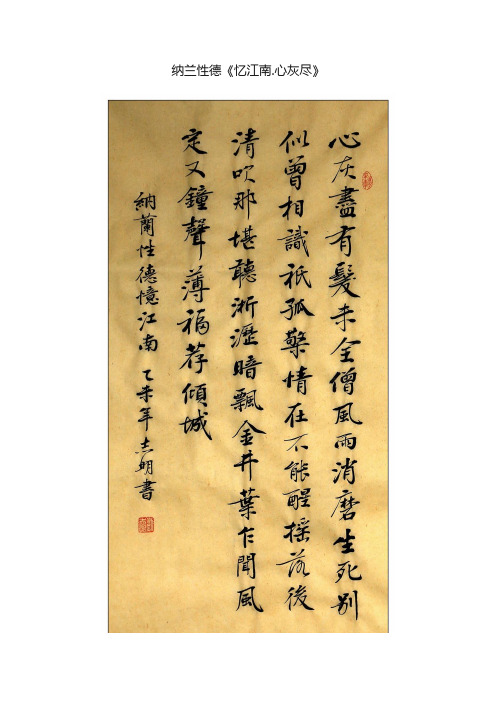 纳兰性德《忆江南.心灰尽》
心灰盡有髮未全僧風雨消磨生死别
似曾相識祇孤檠情在不能醒摇落後
清吹那堪聽淅瀝暗飄金井葉乍聞風
定又鐘聲薄福荐傾城
納蘭性德憶江南 乙未年志明書